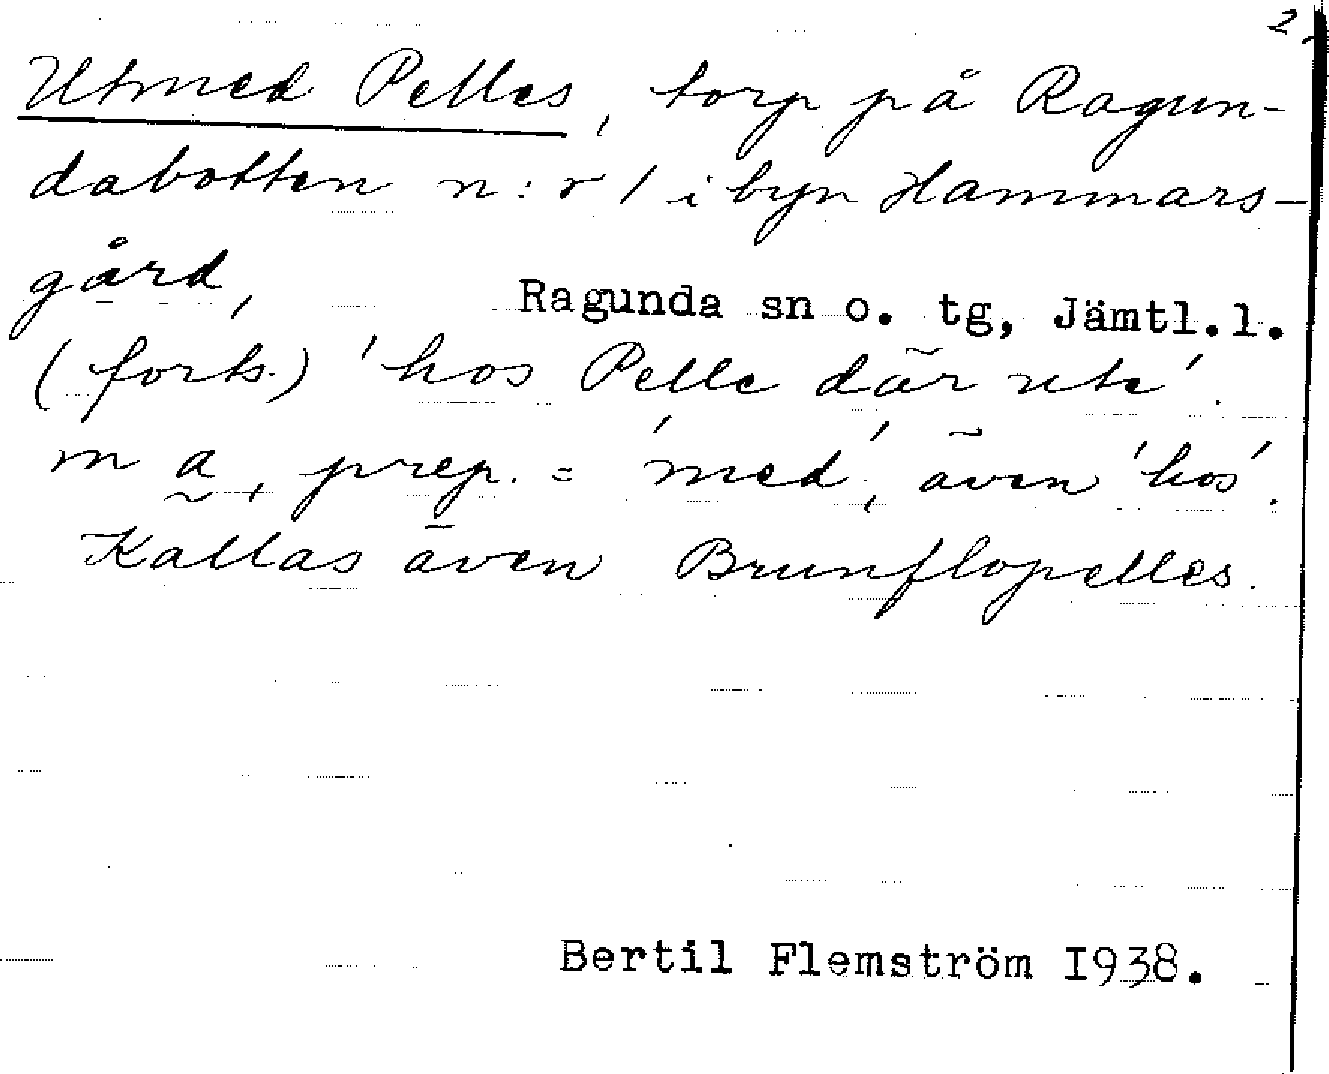 2.
Utmed Pelles, torp på Ragun-
dabotten n:r 1 i byn Hammars-
gård,
Ragunda sn o. tg, Jämtl.l.
(forts.) 'hos Pelle där ute'.
ma, prep. = 'med', även 'hos'.
Kallas även Brunflopelles.
Bertil Flemström 1938.